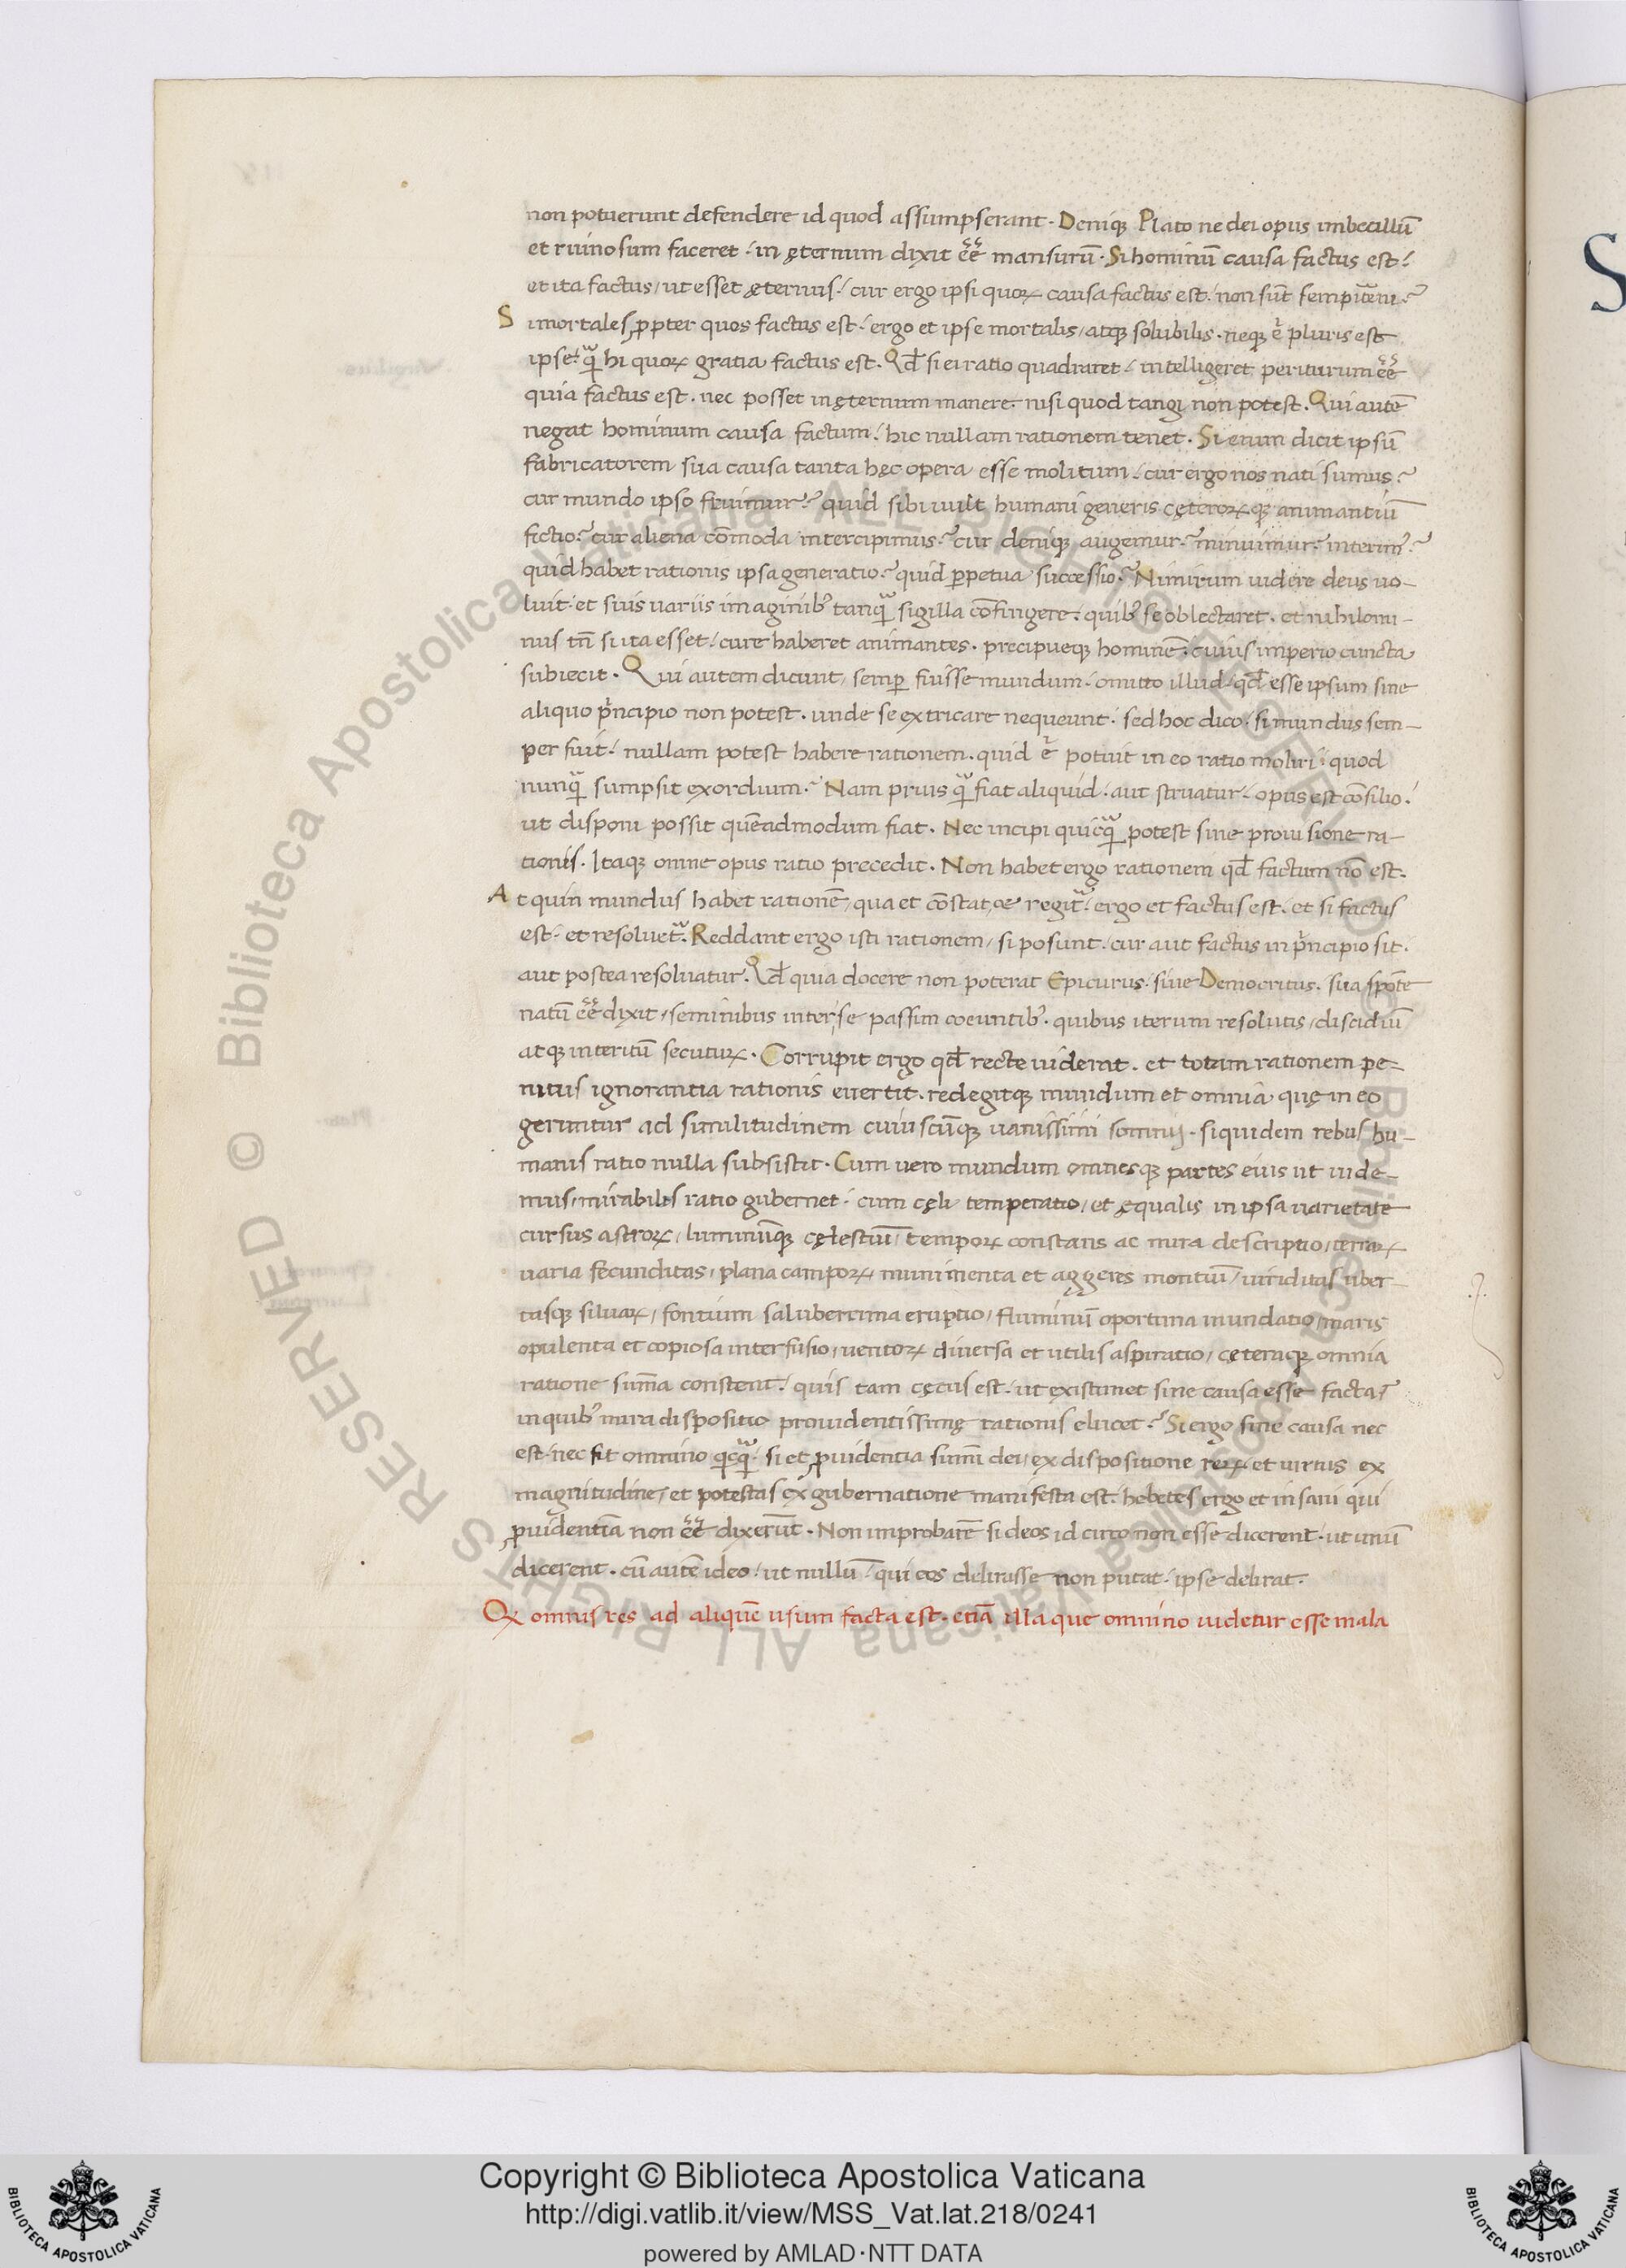 non potuerunt defendere id quod assumpserant. Deniqꝫ Plato ne dei opus imbecillū
et ruinosum faceret. in ęternum dixit eē̃ mansurū. Si hominū causa factus est.
et ita factus, ut esset ęternus. cur ergo ipsi quoꝝ causa factus est. non sūt sempit̃ni?
Si mortales ꝓpter quos factus est. ergo et ipse mortalis, atqꝫ solubilis. neqꝫ ē pluris est
ipse. q̃ hi quoꝝ gratia factus est. Qd̄ si ei ratio quadraret. intelligeret periturum eē̃
quia factus est. nec posset in ęternum manere nisi quod tangi non potest. Qui autē
negat hominum causa factum. hic nullam rationem tenet. Si enim dicit ipsū
fabricatorem sua causa tanta hęc opera esse molitum. cur ergo nos nati sumus?
cur mundo ipso fruimur? quid sibi uult humani generis cęteroꝝqꝫ animantiū
fictio? cur aliena cōmoda intercipimus? cur deniqꝫ augemur? minuimur? interimᷣ?
quid habet rationis ipsa generatio? quid ꝑpetua successio? Nimirum uidere deus uo-
luit. et suis uariis imaginibꝰ tanqᷓ sigilla cōfingere. quibꝰ se oblectaret. et nihilomi-
nus tn̄ si ita esset. cure haberet animantes. precipueqꝫ hominē. cuius imperio cuncta
subiecit. Qui autem dicunt, semꝑ fuisse mundum. omitto illud. qd̄ esse ipsum sine
aliquo pᷣncipio non potest. unde se extricare nequeunt. sed hoc dico. si mundus sem-
per fuit. nullam potest habere rationem. quid ē potuit in eo ratio moliri. quod
nunqᷓ sumpsit exordium? Nam prius qᷓ fiat aliquid. aut struatur. opus est cōsilio.
ut disponi possit quēadmodum fiat. Nec incipi quicqᷓ potest sine prouisione ra-
tionis. Itaqꝫ omne opus ratio precedit. Non habet ergo rationem qd̄ factum nō est.
At quin mundus habet rationē, qua et cōstat, & regitᷣ. ergo et factus est. et si factus
est. et resoluetᷣ. Reddant ergo isti rationem, si posunt. cur aut factus in pᷣncipio sit.
aut postea resoluatur. Qd̄ quia docere non poterat Epicurus. siue Democritus. sua spōte
natū eē̃ dixit, seminibus inter se passim coeuntibꝰ. quibus iterum resolutis, discidiū
atqꝫ interitū secutuꝝ. Corrupit ergo qd̄ recte uiderat. et totam rationem pe-
nitus ignorantia rationis euertit. redegitqꝫ mundum et omnia quę in eo
geruntur ad similitudinem cuiuscūqꝫ uanissimi somnij. siquidem rebus hu-
manis ratio nulla subsistit. Cum uero mundum omnesqꝫ partes eius ut uide-
mus, mirabilis ratio gubernet. cum cęli temperatio, et ęqualis in ipsa uarietate
cursus astroꝝ, luminūqꝫ cęlestiū, tempoꝝ constans ac mira descriptio, terraꝝ
uaria fecunditas, plana campoꝝ, munimenta et aggeres montiū, uiriditas uber-
tasqꝫ siluaꝝ, fontium saluberrima eruptio, fluminū oportuna inundatio, maris
opulenta et copiosa interfusio, uentoꝝ diuersa et utilis aspiratio, cęteraqꝫ omnia
ratione sūma constent. quis tam cęcus est. ut existimet sine causa esse facta?
in quibꝰ mira dispositio prouidentissimę rationis elucet? Si ergo sine causa nec
est. nec fit omnino qicqᷓ. si et ꝓuidentia sūmi dei, ex dispositione reꝝ et uirtus ex
magnitudine, et potestas ex gubernatione manifesta est. hebetes ergo et insani qui
ꝓuidentiā non eē̃ dixerūt. Non improbarē si deos idcirco non esse dicerent. ut unū
dicerent. cū autē ideo. ut nullū. qui eos delirasse non putat. ipse delirat.
Qꝫ omnis res ad aliquē usum facta est. etiā illa que omnino uidetur esse mala
S
© Biblioteca Apostolica Vaticana ALL RIGHTS RESERVED
© Biblioteca Apostolica Vaticana ALL RIGHTS RESERVED
Copyright © Biblioteca Apostolica Vaticana
http://digi.vatlib.it/view/MSS_Vat.lat.218/0241
powered by AMLAD·NTT DATA
BIBLIOTECA APOSTOLICA VATICANA
BIBLIOTECA APOSTOLICA VATICANA